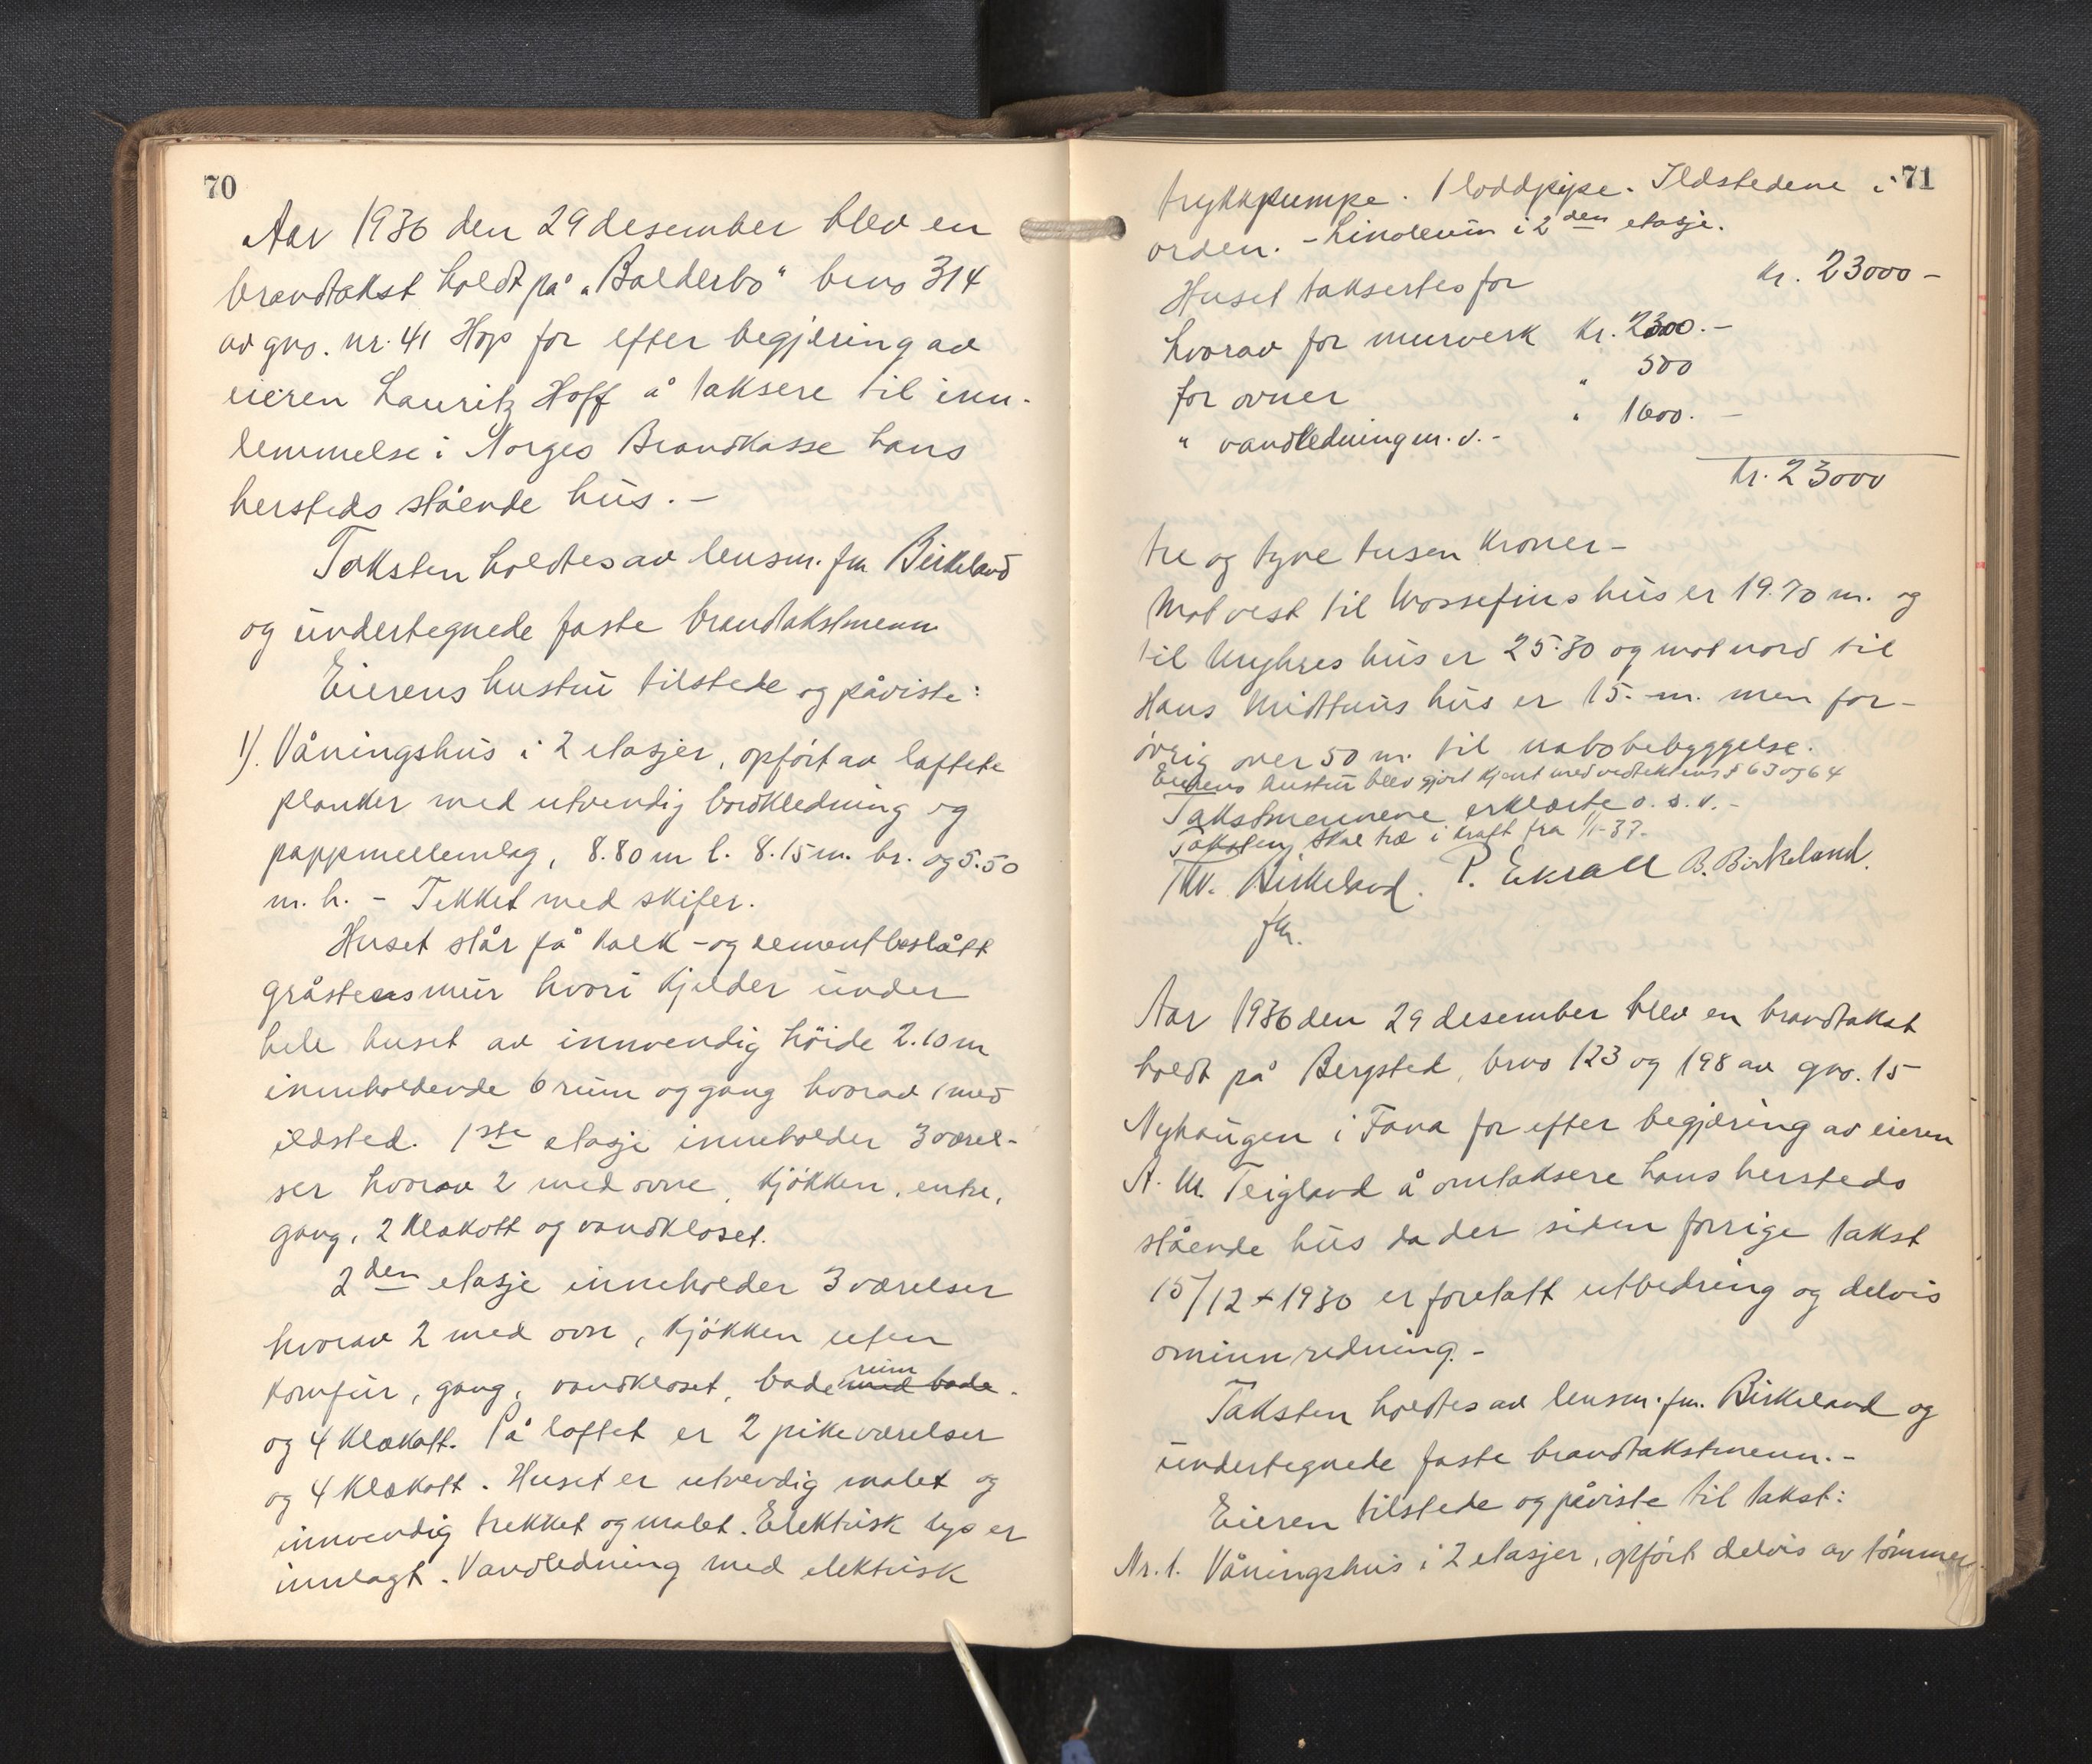 70
Aar 1936 den 29 desember blev en
brandtakst holdt på "Balderbo" brno 314
av gno. nr. 41 Hop for efter begjæring av
eieren Lauritz Hoff å taksere til inn-
lemmelse i Norges Brandkasse hans
hersteds stående hus. -
Taksten holdtes av lensm. fm Birkeland
og undertegnede faste brandtakstmenn
Eierens hustru tilstede og påviste:
1). Våningshus i 2 etasjer, opført av laftete
planker med utvendig bordkledning og
pappmellemlag, 8.80 m l. 8.15 m. br. og 5.50
m. h. - Tekket med skifer.
Huset står på kalk- og cementbeslått
gråstensmur hvori kjelder under
hele huset av innvendig höide 2.10 m
inneholdende 6 rum og gang hvorav 1 med
ildsted. 1ste etasje inneholder 3 værel-
ser hvorav 2 med ovne, kjøkken, entre,
gang, 2 klækott og vandkloset.
2den etasje inneholder 3 værelser
hvorav 2 med ovn, kjøkken uten
komfur, gang, vandkloset, baderum med bade.
og 4 klækott. På loftet er 2 pikeværelser
og 4 klækott. Huset er utvendig malet og
innvendig trekket og malet. Elektrisk lys er
innlagt. Vandledning med elektrisk
71
trykkpumpe. 1 loddpipe. Ildstedene i
orden. - Linoleum i 2den etasje.
Huset taksertes for kr. 23000 -
hvorav for murverk kr. 2300. -
for ovner " 500
" vandledning m. v. - " 1600. -
kr. 23000
tre og tyve tusen kroner -
Mot vest til hus er 19.70 m. og
til hus er 25.30 og mot nord til
Hans Midttuns hus er 15. - m. men for-
øvrig over 50 m. til nabobebyggelse.
Eierens hustru blev gjort kjent med vedtektens § 63 og 64
Takstmennene erklærte o. s. v. -
Taksten skal træ i kraft fra 1/1-37.
Thv. Birkeland. P. Ekrall B. Birkeland.
fm.
Aar 1936 den 29 desember blev en brandtakst
holdt på Bergsted, brno 123 og 198 av gno. 15
Nyhaugen i Fana for efter begjæring av eieren
A. M. Teigland å omtaksere hans hersteds
stående hus da der siden forrige takst
15/12 - 1930 er foretatt utbedring og delvis
ominnredning. -
Taksten holdtes av lensm. fm. Birkeland og
undertegnede faste brandtakstmenn. -
Eieren tilstede og påviste til takst:
Nr. 1. Våningshus i 2 etasjer, opført delvis av tømmer